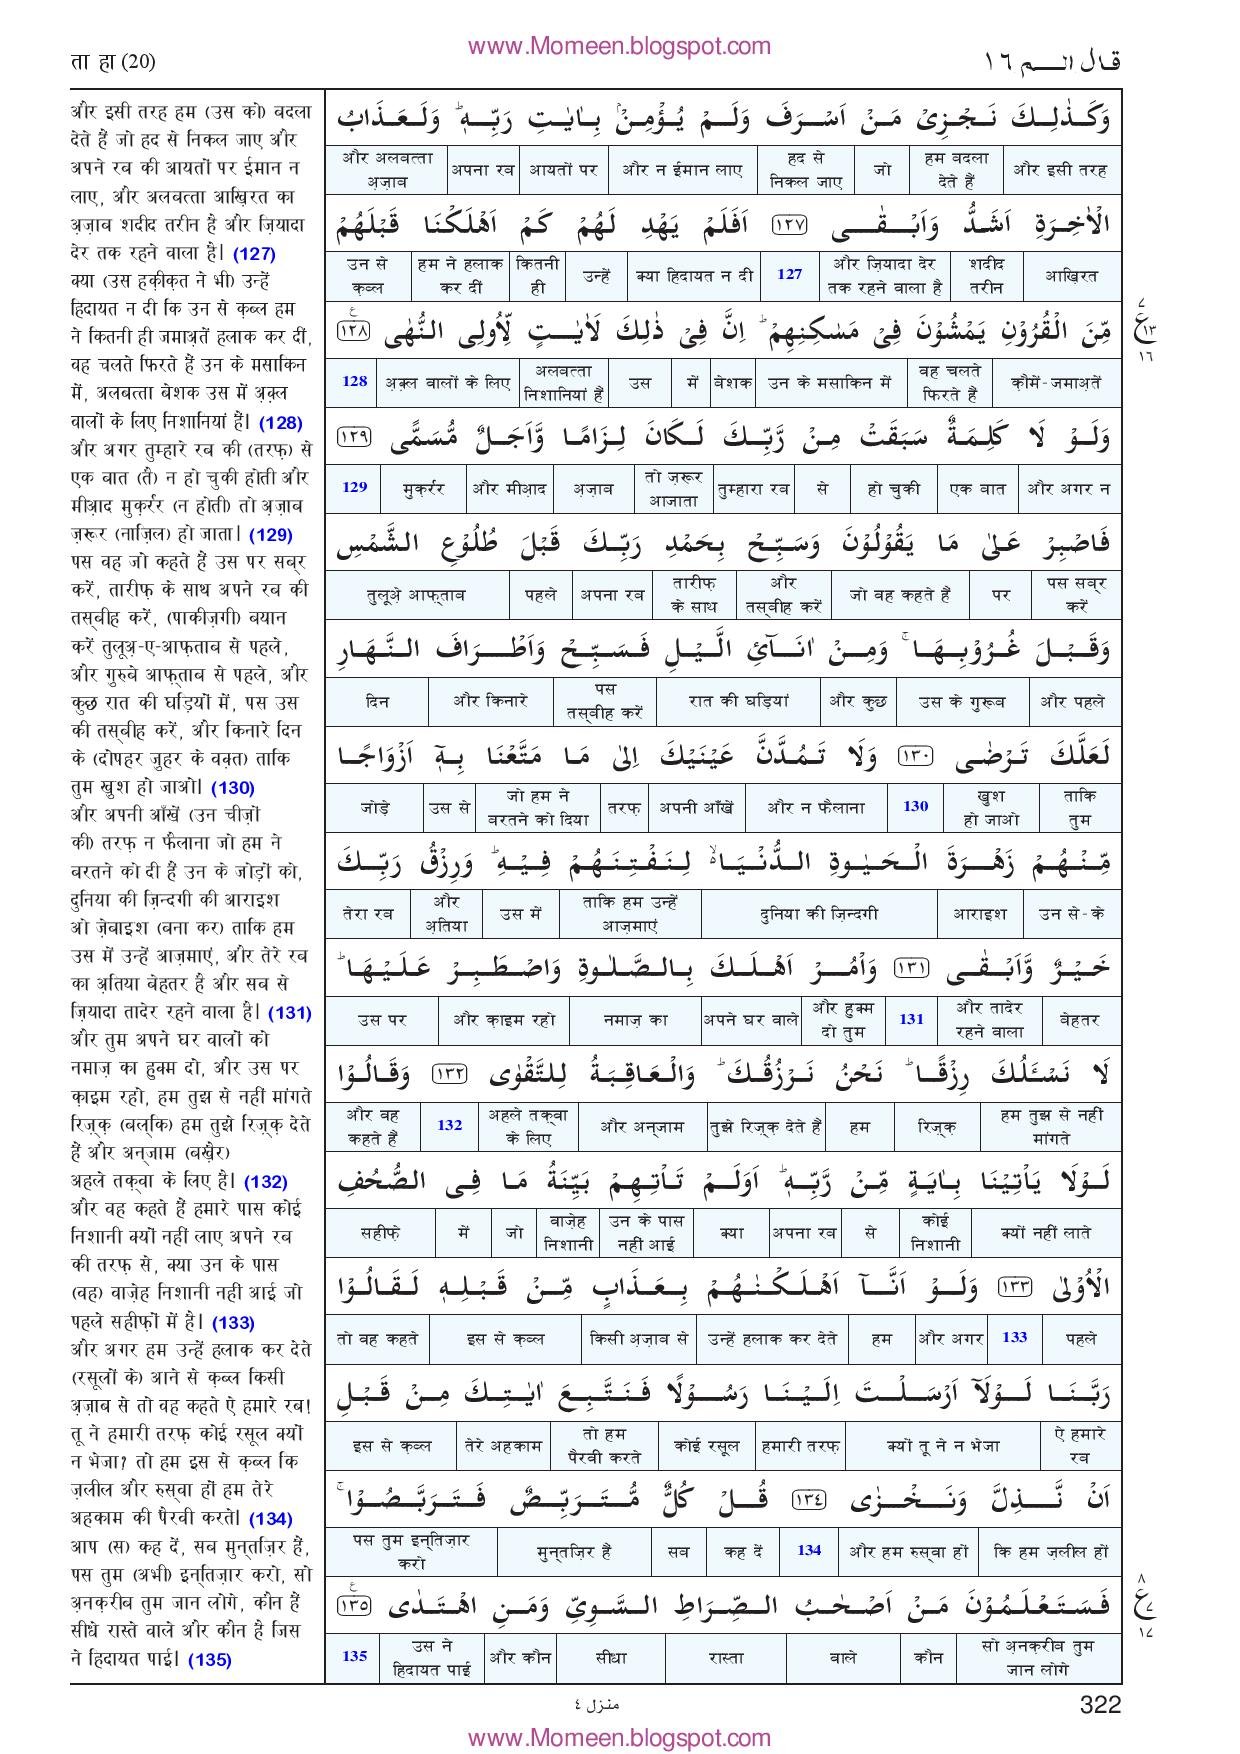 www.Momeen.blogspot.com
ता हा (20)
قال الم ١٦
और इसी तरह हम (उस को) बदला
देते हैं जो हद से निकल जाए और
अपने रब की आयतों पर ईमान न
लाए, और अलबत्ता आख़िरत का
अ़ज़ाब शदीद तरीन है और ज़ियादा
देर तक रहने वाला है। (127)
क्या (उस हक़ीक़त ने भी) उन्हें
हिदायत न दी कि उन से क़ब्ल हम
ने कितनी ही जमाअ़तें हलाक कर दीं,
वह चलते फिरते हैं उन के मसाकिन
में, अलबत्ता बेशक उस में अ़क़्ल
वालों के लिए निशानियां हैं। (128)
और अगर तुम्हारे रब की (तरफ़) से
एक बात (तै) न हो चुकी होती और
मीआ़द मुक़र्रर (न होती) तो अ़ज़ाब
ज़रूर (नाज़िल) हो जाता। (129)
पस वह जो कहते हैं उस पर सब्र
करें, तारीफ़ के साथ अपने रब की
तस्बीह करें, (पाकीज़गी) बयान
करें तुलूअ़-ए-आफ़्ताब से पहले,
और गुरुबे आफ़्ताब से पहले, और
कुछ रात की घड़ियों में, पस उस
की तस्बीह करें, और किनारे दिन
के (दोपहर जुहर के वक़्त) ताकि
तुम खुश हो जाओ। (130)
और अपनी आँखें (उन चीज़ों
की) तरफ़ न फैलाना जो हम ने
बरतने को दी हैं उन के जोड़ों को,
दुनिया की ज़िन्दगी की आराइश
ओ ज़ेबाइश (बना कर) ताकि हम
उस में उन्हें आज़माएं, और तेरे रब
का अ़तिया बेहतर है और सब से
ज़ियादा तादेर रहने वाला है। (131)
और तुम अपने घर वालों को
नमाज़ का हुक्म दो, और उस पर
क़ाइम रहो, हम तुझ से नहीं मांगते
रिज़्क़ (बल्कि) हम तुझे रिज़्क़ देते
हैं और अन्जाम (बख़ैर)
अहले तक़्वा के लिए है। (132)
और वह कहते हैं हमारे पास कोई
निशानी क्यों नहीं लाए अपने रब
की तरफ़ से, क्या उन के पास
(वह) वाज़ेह निशानी नहीं आई जो
पहले सहीफ़ों में है। (133)
और अगर हम उन्हें हलाक कर देते
(रसूलों के) आने से क़ब्ल किसी
अ़ज़ाब से तो वह कहते ऐ हमारे रब!
तू ने हमारी तरफ़ कोई रसूल क्यों
न भेजा? तो हम इस से क़ब्ल कि
ज़लील और रुस्वा हों हम तेरे
अहकाम की पैरवी करते। (134)
आप (स) कह दें, सब मुन्तज़िर हैं,
पस तुम (अभी) इन्तिज़ार करो, सो
अ़नक़रीब तुम जान लोगे, कौन हैं
सीधे रास्ते वाले और कौन है जिस
ने हिदायत पाई। (135)
وَكَذٰلِكَ نَجْزِىْ مَنْ اَسْرَفَ وَلَمْ يُؤْمِنْۢ بِاٰيٰتِ رَبِّهٖ ؕ وَلَعَذَابُ
और इसी तरह हम बदला देते हैं जो हद से निकल जाए और न ईमान लाए आयतों पर अपना रब और अलबत्ता अ़ज़ाब
الْاٰخِرَةِ اَشَدُّ وَاَبْقٰى ﴿١٢٧﴾ اَفَلَمْ يَهْدِ لَهُمْ كَمْ اَهْلَكْنَا قَبْلَهُمْ
आख़िरत शदीद तरीन और ज़ियादा देर तक रहने वाला है 127 क्या हिदायत न दी उन्हें कितनी ही हम ने हलाक कर दीं उन से क़ब्ल
مِّنَ الْقُرُوْنِ يَمْشُوْنَ فِىْ مَسٰكِنِهِمْ ؕ اِنَّ فِىْ ذٰلِكَ لَاٰيٰتٍ لِّاُولِى النُّهٰى ﴿١٢٨﴾ ع
ع ٧ ١٣ ١٦
क़ौमें-जमाअ़तें वह चलते फिरते हैं उन के मसाकिन में बेशक में उस अलबत्ता निशानियां हैं अ़क़्ल वालों के लिए 128
وَلَوْ لَا كَلِمَةٌ سَبَقَتْ مِنْ رَّبِّكَ لَكَانَ لِزَامًا وَّاَجَلٌ مُّسَمًّى ﴿١٢٩﴾
और अगर न एक बात हो चुकी से तुम्हारा रब तो ज़रूर आजाता अ़ज़ाब और मीआ़द मुक़र्रर 129
فَاصْبِرْ عَلٰى مَا يَقُوْلُوْنَ وَسَبِّحْ بِحَمْدِ رَبِّكَ قَبْلَ طُلُوْعِ الشَّمْسِ
पस सब्र करें पर जो वह कहते हैं और तस्बीह करें तारीफ़ के साथ अपना रब पहले तुलूअ़े आफ़्ताब
وَقَبْلَ غُرُوْبِهَا ۚ وَمِنْ اٰنَآئِ الَّيْلِ فَسَبِّحْ وَاَطْرَافَ النَّهَارِ
और पहले उस के गुरूब और कुछ रात की घड़ियां पस तस्बीह करें और किनारे दिन
لَعَلَّكَ تَرْضٰى ﴿١٣٠﴾ وَلَا تَمُدَّنَّ عَيْنَيْكَ اِلٰى مَا مَتَّعْنَا بِهٖٓ اَزْوَاجًا
ताकि तुम खुश हो जाओ 130 और न फैलाना अपनी आँखें तरफ़ जो हम ने बरतने को दिया उस से जोड़े
مِّنْهُمْ زَهْرَةَ الْحَيٰوةِ الدُّنْيَا ۙ لِنَفْتِنَهُمْ فِيْهِ ؕ وَرِزْقُ رَبِّكَ
उन से-के आराइश दुनिया की ज़िन्दगी ताकि हम उन्हें आज़माएं उस में और अ़तिया तेरा रब
خَيْرٌ وَّاَبْقٰى ﴿١٣١﴾ وَاْمُرْ اَهْلَكَ بِالصَّلٰوةِ وَاصْطَبِرْ عَلَيْهَا ؕ
बेहतर और तादेर रहने वाला 131 और हुक्म दो तुम अपने घर वाले नमाज़ का और क़ाइम रहो उस पर
لَا نَسْـَٔلُكَ رِزْقًا ؕ نَحْنُ نَرْزُقُكَ ؕ وَالْعَاقِبَةُ لِلتَّقْوٰى ﴿١٣٢﴾ وَقَالُوْا
हम तुझ से नहीं मांगते रिज़्क़ हम तुझे रिज़्क़ देते हैं और अन्जाम अहले तक़्वा के लिए 132 और वह कहते हैं
لَوْلَا يَاْتِيْنَا بِاٰيَةٍ مِّنْ رَّبِّهٖ ؕ اَوَلَمْ تَاْتِهِمْ بَيِّنَةُ مَا فِى الصُّحُفِ
क्यों नहीं लाते कोई निशानी से अपना रब क्या उन के पास नहीं आई वाज़ेह निशानी जो में सहीफ़े
الْاُوْلٰى ﴿١٣٣﴾ وَلَوْ اَنَّآ اَهْلَكْنٰهُمْ بِعَذَابٍ مِّنْ قَبْلِهٖ لَقَالُوْا
पहले 133 और अगर हम उन्हें हलाक कर देते किसी अ़ज़ाब से इस से क़ब्ल तो वह कहते
رَبَّنَا لَوْلَآ اَرْسَلْتَ اِلَيْنَا رَسُوْلًا فَنَتَّبِعَ اٰيٰتِكَ مِنْ قَبْلِ
ऐ हमारे रब क्यों तू ने न भेजा हमारी तरफ़ कोई रसूल तो हम पैरवी करते तेरे अहकाम इस से क़ब्ल
اَنْ نَّذِلَّ وَنَخْزٰى ﴿١٣٤﴾ قُلْ كُلٌّ مُّتَرَبِّصٌ فَتَرَبَّصُوْا ۚ
कि हम ज़लील हों और हम रुस्वा हों 134 कह दें सब मुन्तज़िर हैं पस तुम इन्तिज़ार करो
فَسَتَعْلَمُوْنَ مَنْ اَصْحٰبُ الصِّرَاطِ السَّوِىِّ وَمَنِ اهْتَدٰى ﴿١٣٥﴾ ع
ع ٨ ٧ ١٧
सो अ़नक़रीब तुम जान लोगे कौन वाले रास्ता सीधा और कौन उस ने हिदायत पाई 135
منزل ٤
322
www.Momeen.blogspot.com